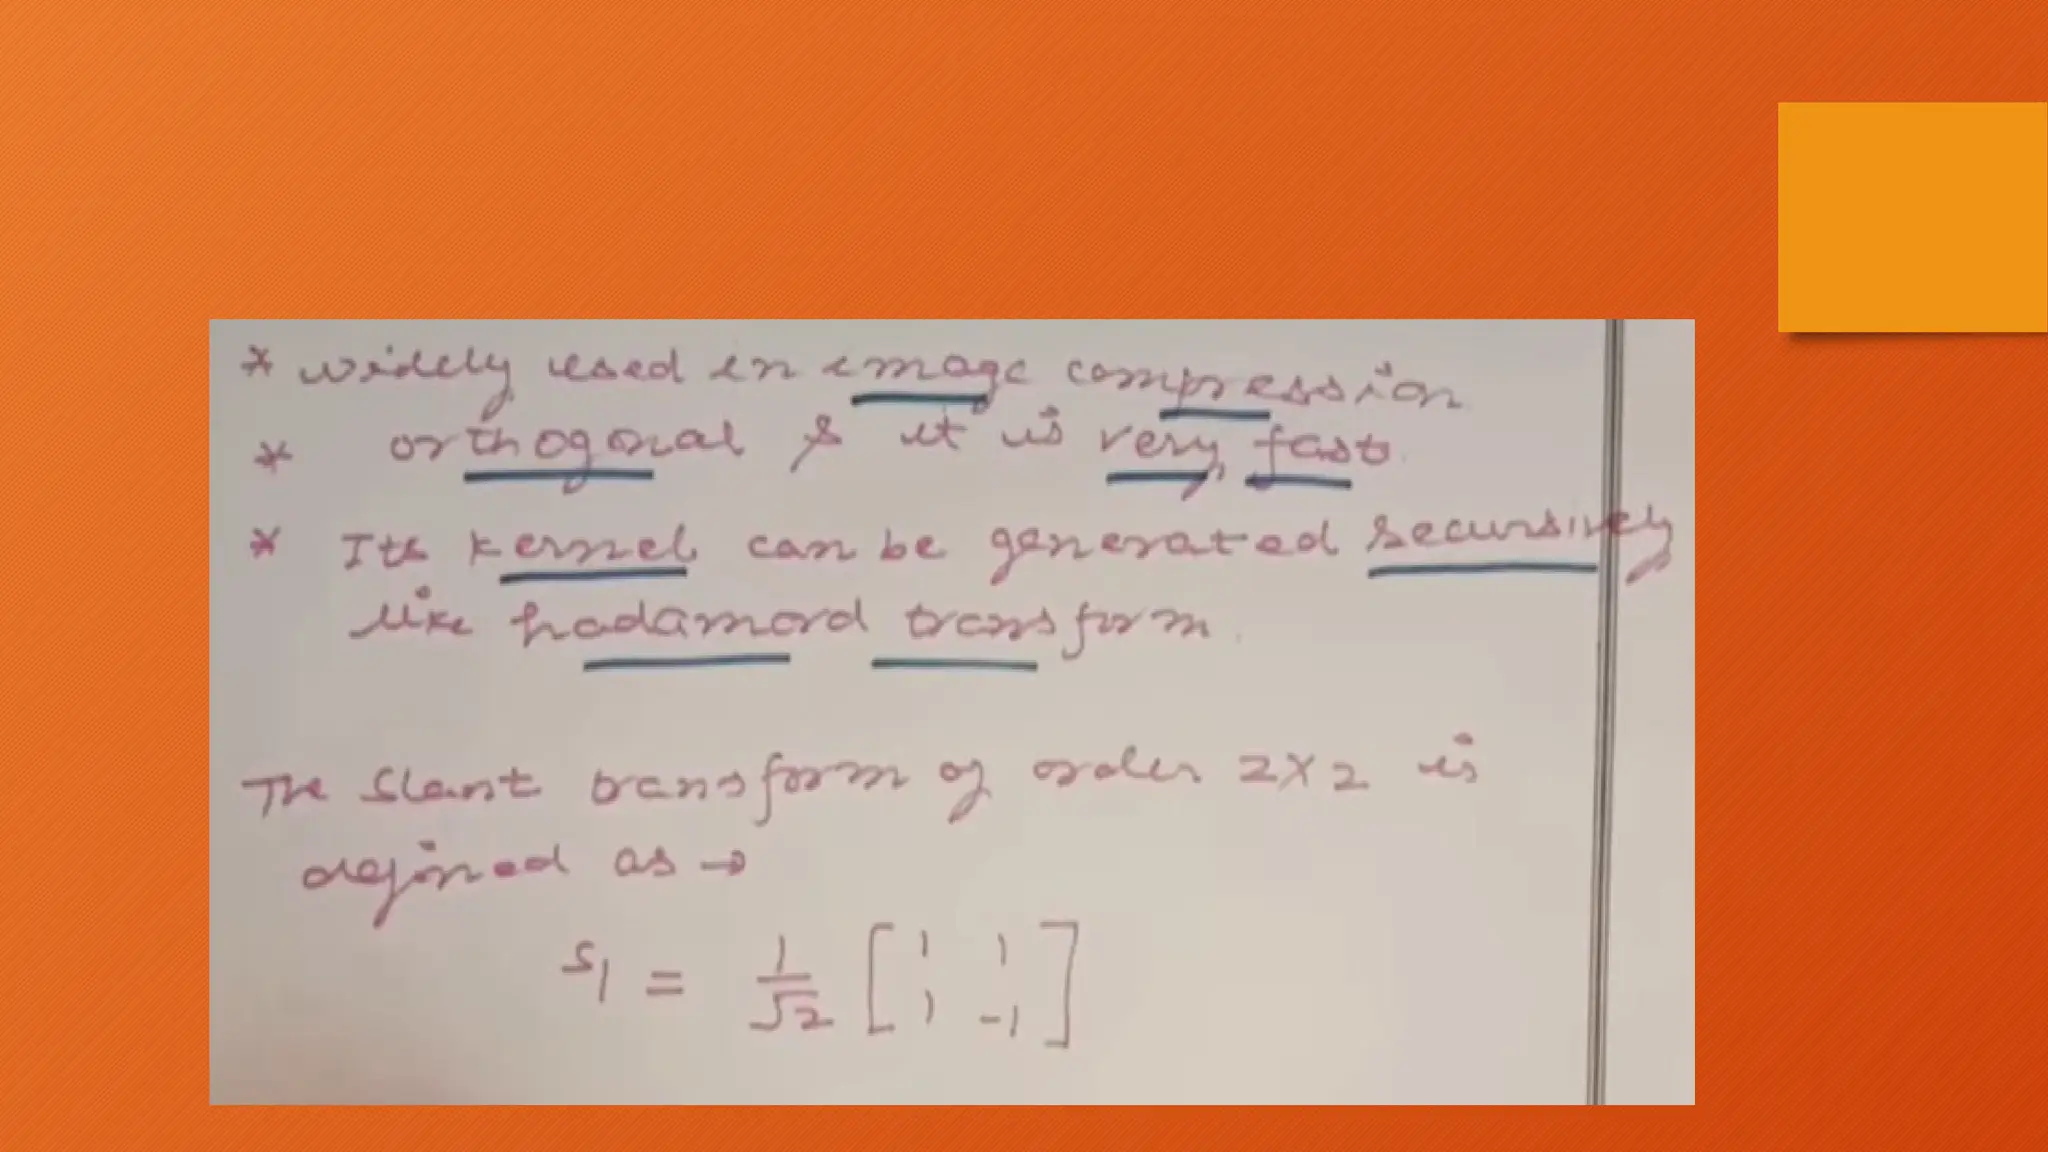 * widely used in image compression
* orthogonal & it is very fast.
* Its kernel can be generated recursively
like hadamard transform.
The Slant transform of order 2x2 is
defined as →
S1 = 1/√2 [ 1 1
1 -1 ]